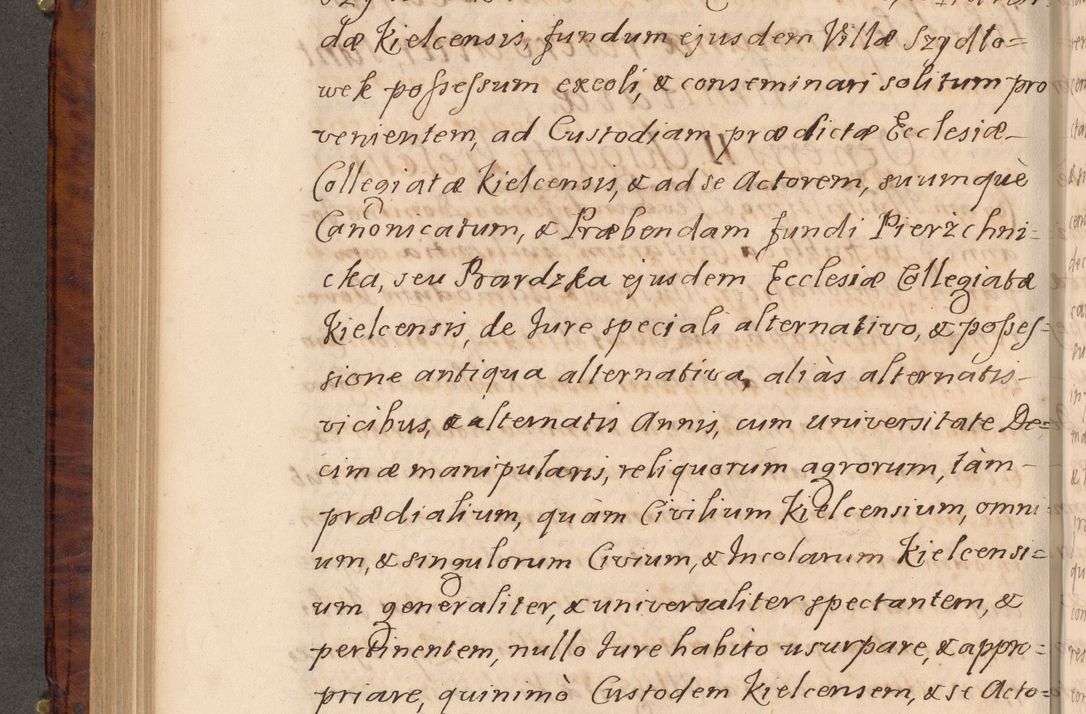 dæ Kielcensis, fundum ejusdem Villæ Szydło=
wek possessum excoli, & conseminari solitum pro
venientem, ad Custodiam prædictæ Ecclesiæ
Collegiatæ Kielcensis, & ad se Actorem, suumquè
Canonicatum, & Præbendam fundi Pierzchni=
cka, seu Bardzka ejusdem Ecclesiæ Collegiatæ
Kielcensis, de Jure speciali alternativo, & posses=
sione antiqua alternativa, aliàs alternatis
vicibus, & alternatis Annis, cum universitate De=
cimæ manipularis, reliquorum agrorum, tàm
prædialium, quàm Civilium Kielcensium, omni
um, & singulorum Civium, & Incolarum Kielcensi=
um generaliter, & universaliter spectantem, &
pertinentem, nullo Jure habito usurpare, & appro=
priare, quinimò Custodem Kielcensem, & se Acto=